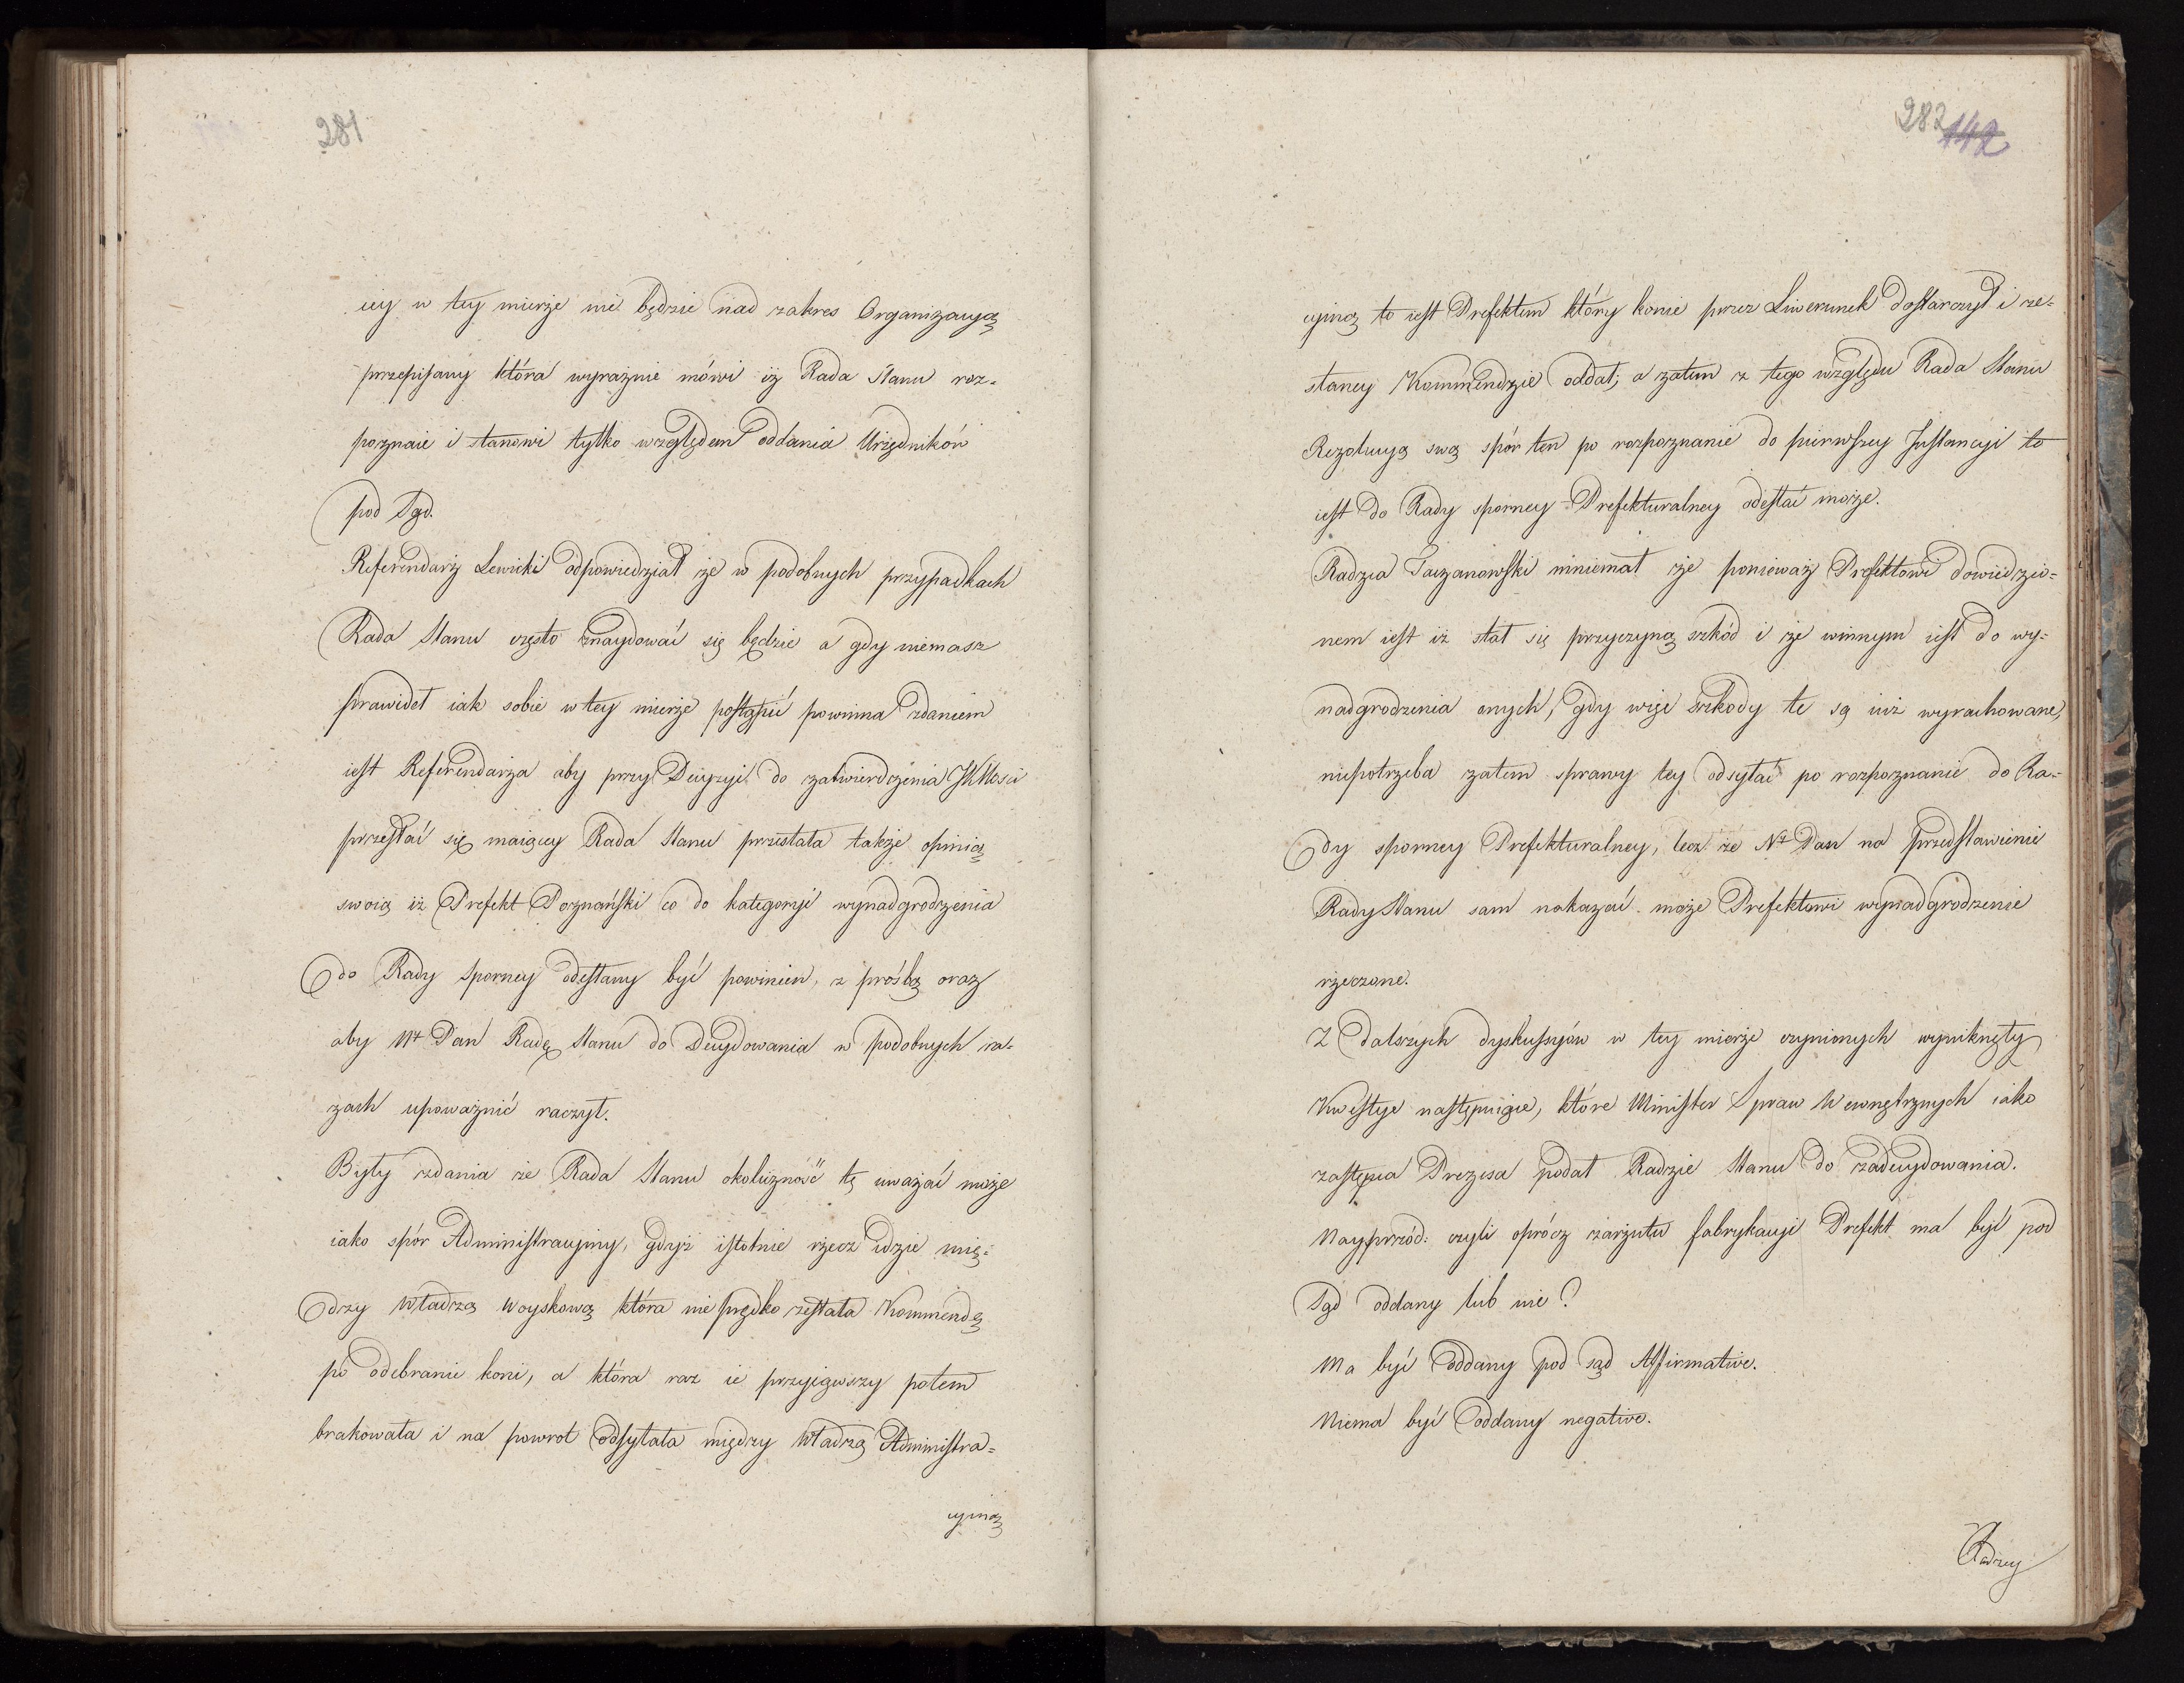 281
iey w tey mierze nie będzie nad zakres Organizacyą
przepisany która wyraźnie mówi iż Rada Stanu roz-
poznaie i stanowi tylko względem oddania Urzędników
pod Sąd.
Referendarz Lewicki odpowiedział że w podobnych przypadkach
Rada Stanu często znaydować się będzie a gdy niemasz
prawideł iak sobie w tey mierze postąpić powinna zdaniem
iest Referendarza aby przy Decyzyi do zatwierdzenia JKMości
przesłać się maiącey Rada Stanu przesłała także opinią
swoią iż Prefekt Poznański co do kategoryi wynadgrodzenia
do Rady sporney odesłany być powinien, z prośbą oraz
aby Nt Pan Radę Stanu do Decydowania w podobnych ra-
zach upoważnić raczył.
Byty zdania że Rada Stanu okoliczność tę uważać może
iako spór Administracyiny, gdyż istotnie rzecz idzie mię-
dzy Władzą Woyskową która nie prędko zesłała Kommendę
po odebranie koni, a która raz ie przyiąwszy potem
brakowała i na powrot odsyłała między Władzą Administra-
cyiną
282 142
cyiną to iest Prefektem który konie przez Liwerunek dostarczył i ze-
słaney Kommendzie oddał; a zatem z tego względu Rada Stanu
Rezolucyą swą spór ten po rozpoznanie do pierwszey Instancyi to
iest do Rady sporney Prefekturalney odesłać może.
Radzca Taczanowski mniemał że ponieważ Prefektowi dowiedzio-
nem iest iż stał się przyczyną szkód i że winnym iest do wy-
nadgrodzenia onych, gdy więc szkody te są iuż wyrachowane,
niepotrzeba zatem sprawy tey odsyłać po rozpoznanie do Ra-
dy sporney Prefekturalney, lecz że Nt Pan na przedstawienie
Rady Stanu sam nakazać może Prefektowi wynadgrodzenie
rzeczone.
Z dalszych dyskussyów w tey mierze czynionych wyniknęły
Kwestye następuiące, które Minister Spraw Wewnętrznych iako
zastępca Prezesa podał Radzie Stanu do zadecydowania.
Nayprzód: czyli oprócz zarzutu fabrykacyi Prefekt ma być pod
Sąd oddany lub nie?
Ma być oddany pod sąd Affirmative.
Niema być oddany negative.
Radzcy